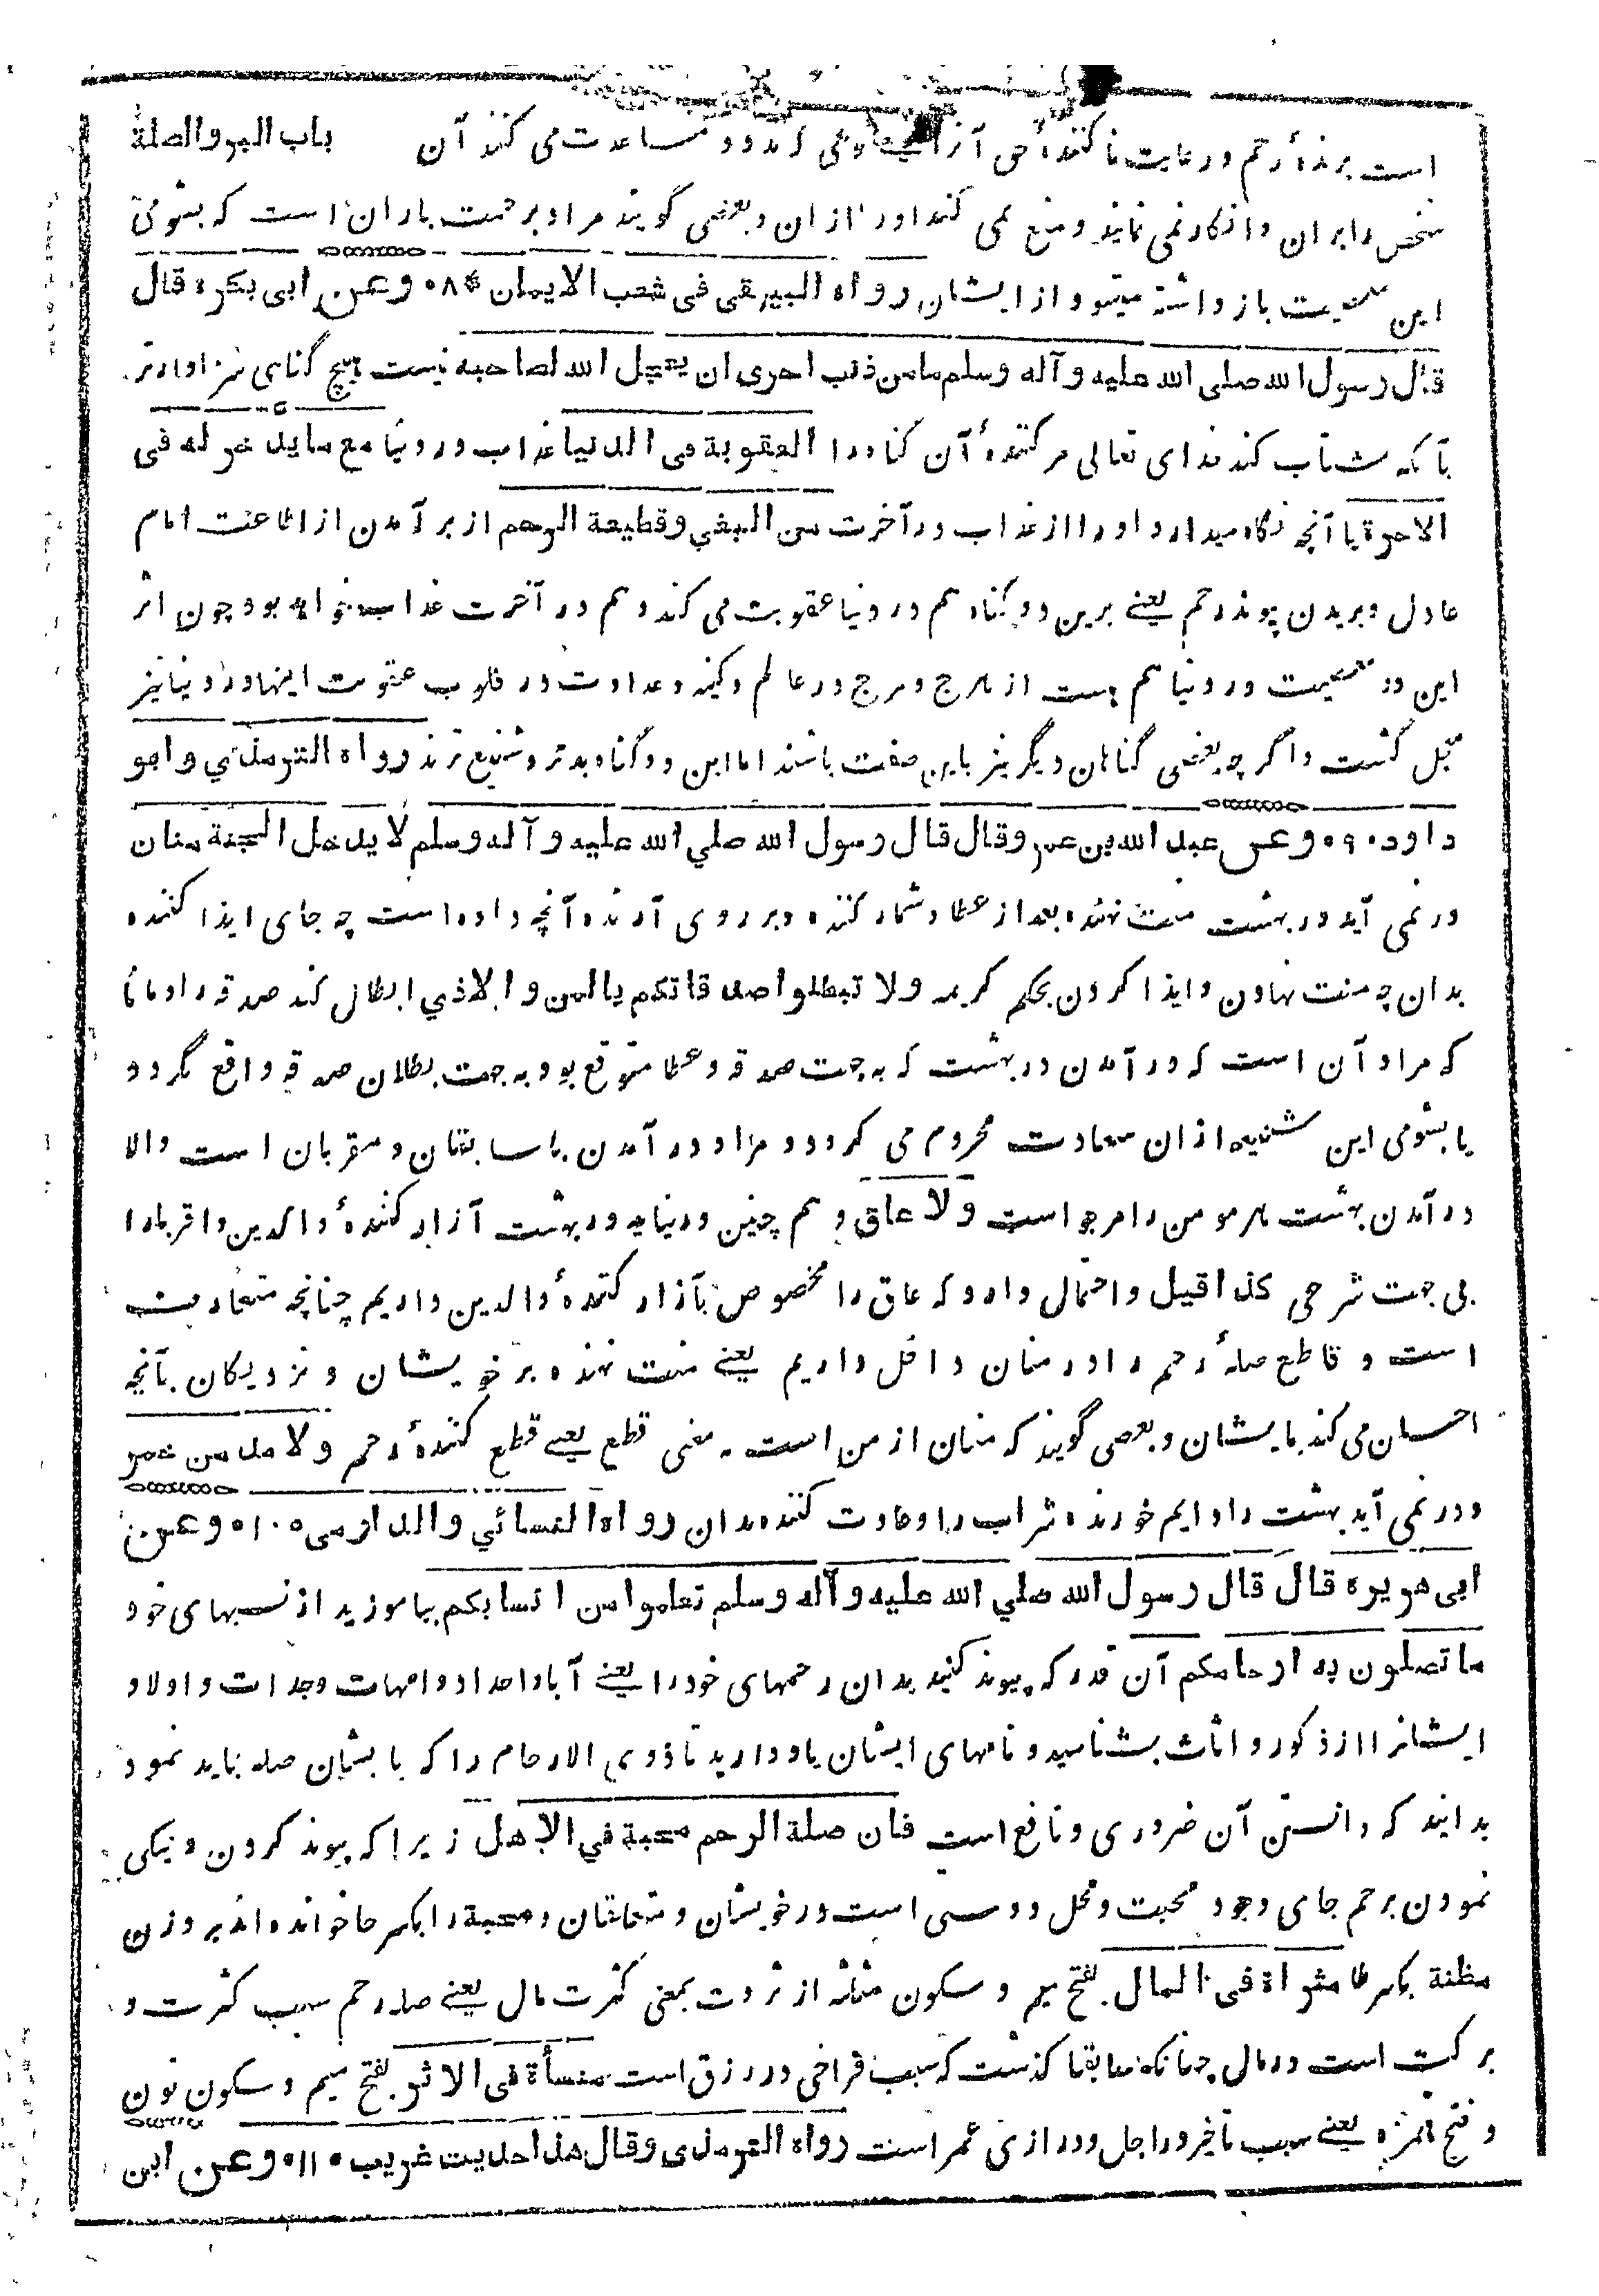 باب البر والصلة
است برندۀ رحم و رعایت ناکنندۀ حق آنرا و مساعدت می کند آن
شخص را بران و انکار نمی نماید و منع نمی کند اورا ازان و بعضی گویند مراد برحمت باران است که بشومی
این معصیت باز داشته میشود از ایشان رواه البیهقی فی شعب الایمان * ۸ ۰ وعن ابی بکرة قال
قال رسول الله صلی الله علیه وآله وسلم مامن ذنب احری ان یعجل الله لصاحبه نیست هیچ گناهی سزاوارتر
بآنکه شتاب کند خدای تعالی مر کنندۀ آن گناه را العقوبة فی الدنیا عذاب در دنیا مع ما یدخر له فی
الاخرة با آنچه نگاه میدارد اورا از عذاب در آخرت من البغي وقطیعة الرحم از بر آمدن از اطاعت امام
عادل و بریدن پیوند رحم یعنے برین دو گناه هم در دنیا عقوبت می کند و هم در آخرت عذاب خواهد بود چون اثر
این دو معصیت در دنیا هم هست از هرج و مرج در عالم و کینه و عداوت در قلوب عقوبت اینها در دنیا نیز
معجل گشت و اگر چه بعضی گناهان دیگر نیز باین صفت باشند اما این دو گناه بدتر و شنیع ترند رواه الترمذي وابو
داود ۹ ۰ وعن عبد الله بن عمرو قال قال رسول الله صلي الله علیه وآله وسلم لا یدخل الجنة منان
در نمی آید در بهشت منت نهنده بعد از عطا و شمار کننده و بر روی آرنده آنچه داده است چه جای ایذا کننده
بدان چه منت نهادن و ایذا کردن بحکم کریمه ولا تبطلوا صدقاتکم بالمن والاذي ابطال کند صدقه را و مانا
که مراد آن است که در آمدن در بهشت که به جهت صدقه و عطا متوقع بود به جهت بطلان صدقه واقع نگردد
یا بشومی این شنیعه ازان سعادت محروم می گردد و مراد در آمدن با سابقان و مقربان است والا
در آمدن بهشت هر مومن را مرجو است ولا عاق و هم چنین در نیاید در بهشت آزار کنندۀ والدین و اقربا را
بی جهت شرعی کذا قیل و احتمال دارد که عاق را مخصوص بآزار کنندۀ والدین داریم چنانچه متعارف
است و قاطع صلۀ رحم را در منان داخل داریم یعنے منت نهنده بر خویشان و نزدیکان بآنچه
احسان می کند با یشان و بعضی گویند که منان از من است به معنی قطع یعنے قطع کنندۀ رحم ولا مدمن خمر
و در نمی آید بهشت را دایم خورنده شراب را و عادت کننده بدان رواه النسائي والدارمی ۱۰ ۰ وعن
ابی هریرة قال قال رسول الله صلي الله علیه وآله وسلم تعلموا من انسابکم بیاموزید از نسبهای خود
ما تصلون به ارحامکم آن قدر که پیوند کنید بدان رحمهای خود را یعنے آبا و اجداد و امهات و جدات و اولاد
ایشانرا از ذکور و اناث بشناسید و نامهای ایشان یاد دارید تا ذوی الارحام را که با یشان صله باید نمود
بدانید که دانستن آن ضروری و نافع است فان صلة الرحم محبة في الاهل زیرا که پیوند کردن و نیکی
نمودن برحم جای وجود محبت و محل دوستی است در خویشان و متعلقان و محبة را بکسر حا خوانده اند بر وزن
مظنة بکسر ظا مثراة فی المال بفتح میم و سکون مثلثه از ثروت بمعنی کثرت مال یعنے صله رحم سبب کثرت و
برکت است در مال چنانکه سابقا گذشت که سبب فراخی در رزق است منسأة فی الاثر بفتح میم و سکون نون
و فتح همزه یعنے سبب تأخیر در اجل و درازی عمر است رواه الترمذی وقال هذا حدیث غریب ۱۱ ۰ وعن ابن